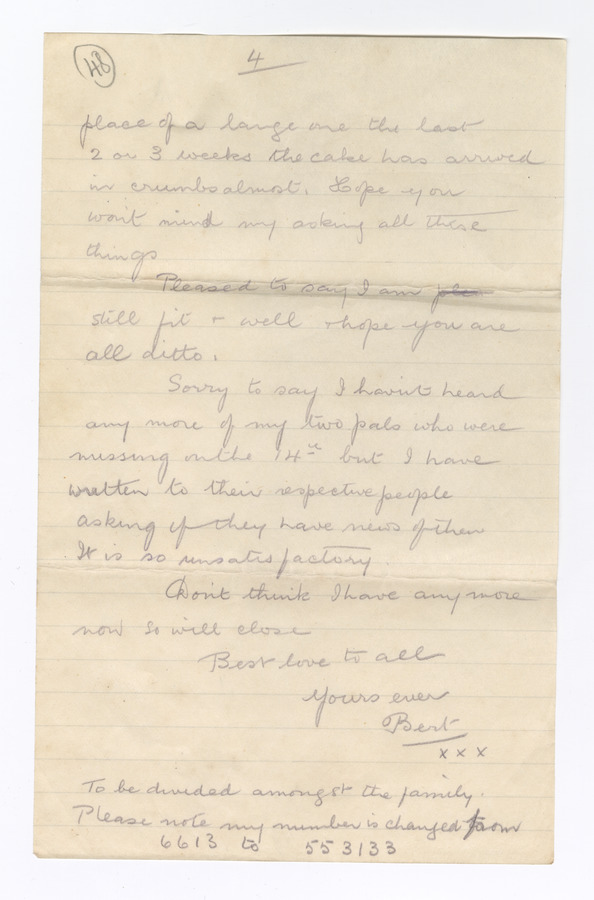 48
4
place of a large one the last
2 or 3 weeks the cake has arrived
in crumbs almost. Hope you
won't mind my asking all these
things
Pleased to say I am ple
still fit + well + hope you are
all ditto.
Sorry to say I havn't heard
any more of my two pals who were
missing on the 14th but I have
written to their respective people
asking if they have news of them
It is so unsatisfactory.
Don't think I have any more
now so will close
Best love to all
Yours ever
Bert
x x x
To be divided amongst the family.
Please note my number is changed from
6613 to 553133